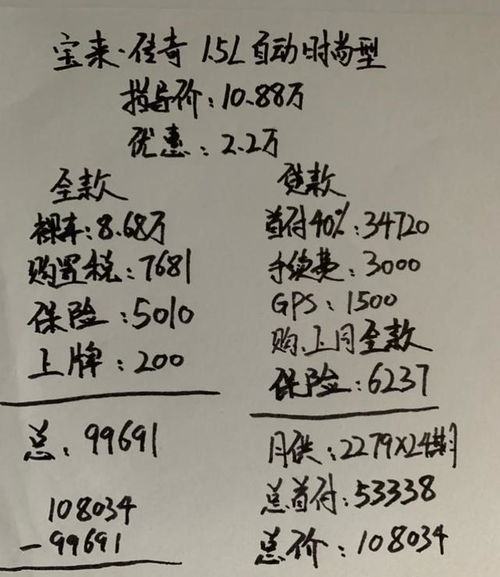 宝来·传奇 1.5L自动时尚型
指导价：10.88万
优惠：2.2万
全款
裸车：8.68万
购置税：7681
保险：5010
上牌：200
总：99691
108034
-99691
贷款
首付40%：34720
手续费：3000
GPS：1500
购、上同全款
保险：6237
月供：2279×24期
总首付：53338
总价：108034